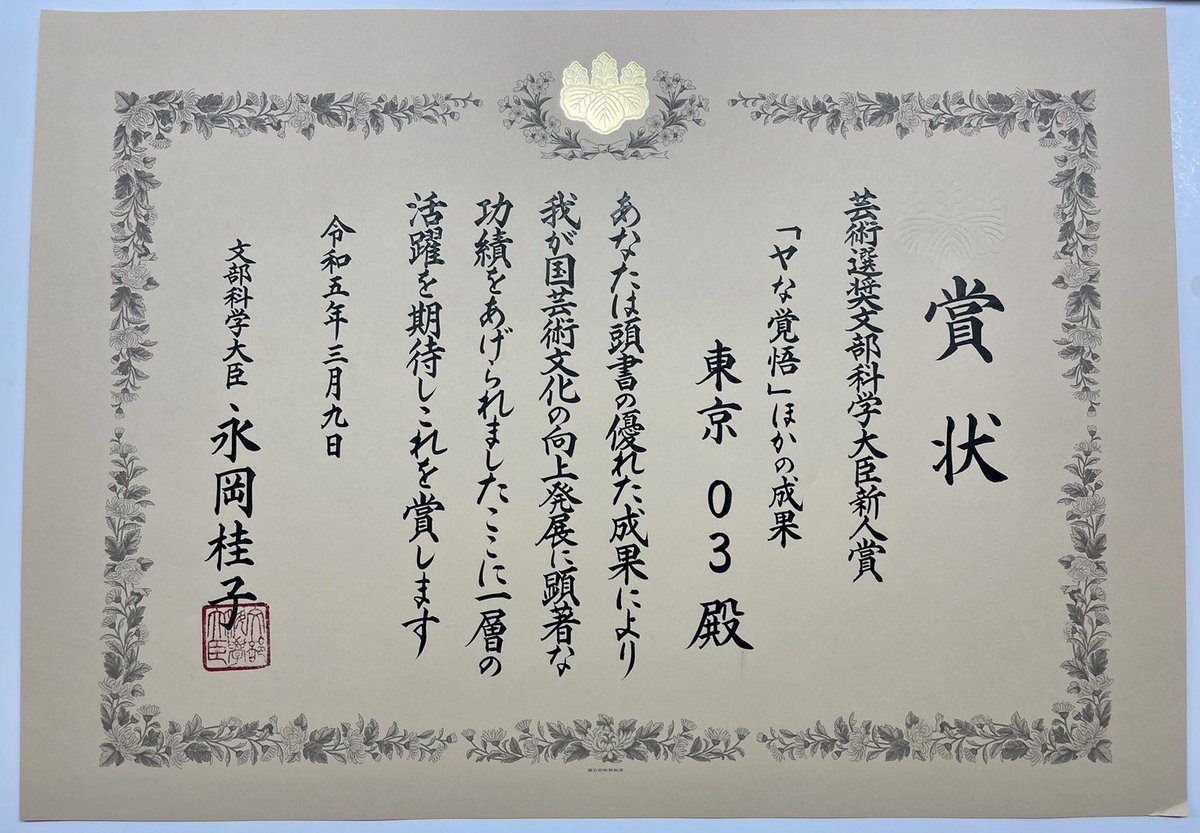 賞状
芸術選奨文部科学大臣新人賞
「ヤな覚悟」ほかの成果
東京03殿
あなたは頭書の優れた成果により
我が国芸術文化の向上発展に顕著な
功績をあげられましたここに一層の
活躍を期待しこれを賞します
令和五年三月九日
文部科学大臣 永岡桂子